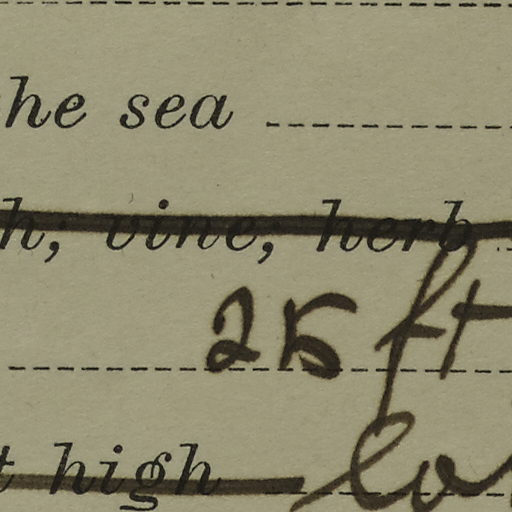 he sea
h; vine, herb
25 ft
t high